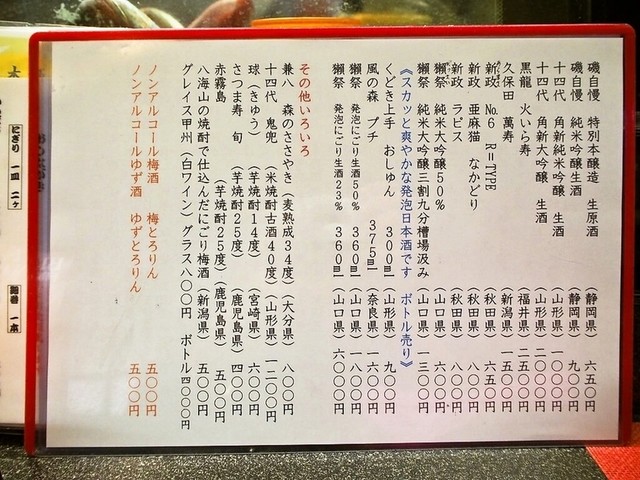 磯自慢 特別本醸造 生原酒 (静岡県) 六五〇円
磯自慢 純米吟醸生酒 (静岡県) 九〇〇円
十四代 角新純米吟醸 生酒 (山形県) 一〇〇〇円
十四代 角新大吟醸 生酒 (山形県) 二〇〇〇円
黒龍 火いら寿 (福井県) 二五〇〇円
久保田 萬寿 (新潟県) 一五〇〇円
新政 No.6 R=TYPE (秋田県) 六五〇円
新政 亜麻猫 なかどり (秋田県) 八〇〇円
新政 ラピス (秋田県) 八〇〇円
獺祭 純米大吟醸50% (山口県) 六〇〇円
獺祭 純米大吟醸三割九分槽場汲み (山口県) 一三〇〇円
《スカッと爽やかな発泡日本酒です ボトル売り》
くどき上手 おしゅん 300ml (山形県) 九〇〇円
風の森 プチ 375ml (奈良県) 一六〇〇円
獺祭 発泡にごり生酒50% 360ml (山口県) 一八〇〇円
獺祭 発泡にごり生酒23% 360ml (山口県) 六〇〇〇円
その他いろいろ
兼八 森のささやき (麦熟成34度) (大分県) 八〇〇円
十四代 鬼兜 (米焼酎古酒40度) (山形県) 一二〇〇円
球(きゅう) (芋焼酎14度) (宮崎県) 六〇〇円
さつま寿 旬 (芋焼酎25度) (鹿児島県) 四〇〇円
赤霧島 (芋焼酎25度) (鹿児島県) 五〇〇円
八海山の焼酎で仕込んだにごり梅酒 (新潟県) 五〇〇円
グレイス甲州 (白ワイン) グラス八〇〇円 ボトル四〇〇〇円
ノンアルコール梅酒 梅とろりん 五〇〇円
ノンアルコールゆず酒 ゆずとろりん 五〇〇円
にぎり 一皿 二ヶ
一本